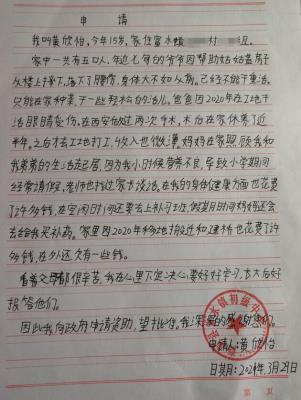 申 请
我叫黄欣怡,今年15岁,家住富水镇 村 组。
家中一共有五口人,年近七旬的爷爷因帮助姑姑盖房子
从楼上摔下,落下了腰伤,身体大不如从前。已经不能干重活。
只能在家种菜,干一些轻松的活儿。爸爸因2020年在工地干
活眼睛受伤,在西安做过两次手术,术后在家休养了近
半年。之后去工地打工,收入也微薄。妈妈在家照顾我和
我弟弟的生活起居,因为我小时候营养不良,导致小学期间
经常请假。老师也找过家长谈话,在我的身体健康方面也花费
了许多钱,在空闲时间还要去上补习班,假期时间妈妈还会
去给我买补药。家里因2020年移地搬迁和建楼也花费了许
多钱,在外还欠有一些钱。
看着父母都很辛苦,我在心里下定决心,要好好学习,长大后好
报答他们。
因此我向政府申请资助,望批准。我深深的感谢您们。
水镇初级中
申请人:黄欣怡
日期:2021年3月29日
第 页